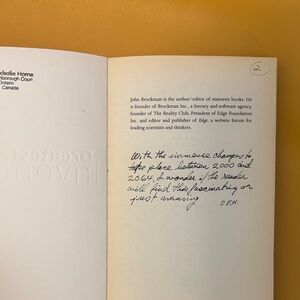 Home
Court
Ontario
Canada
2
John Brockman is the author/editor of nineteen books. He
is founder of Brockman Inc., a literary and software agency,
founder of The Reality Club, President of Edge Foundation
Inc. and editor and publisher of Edge, a website forum for
leading scientists and thinkers.
With the immense changes to
take place between 2000 and
2064, I wonder if the reader
will find this fascinating or
just amusing.
D.E.H.